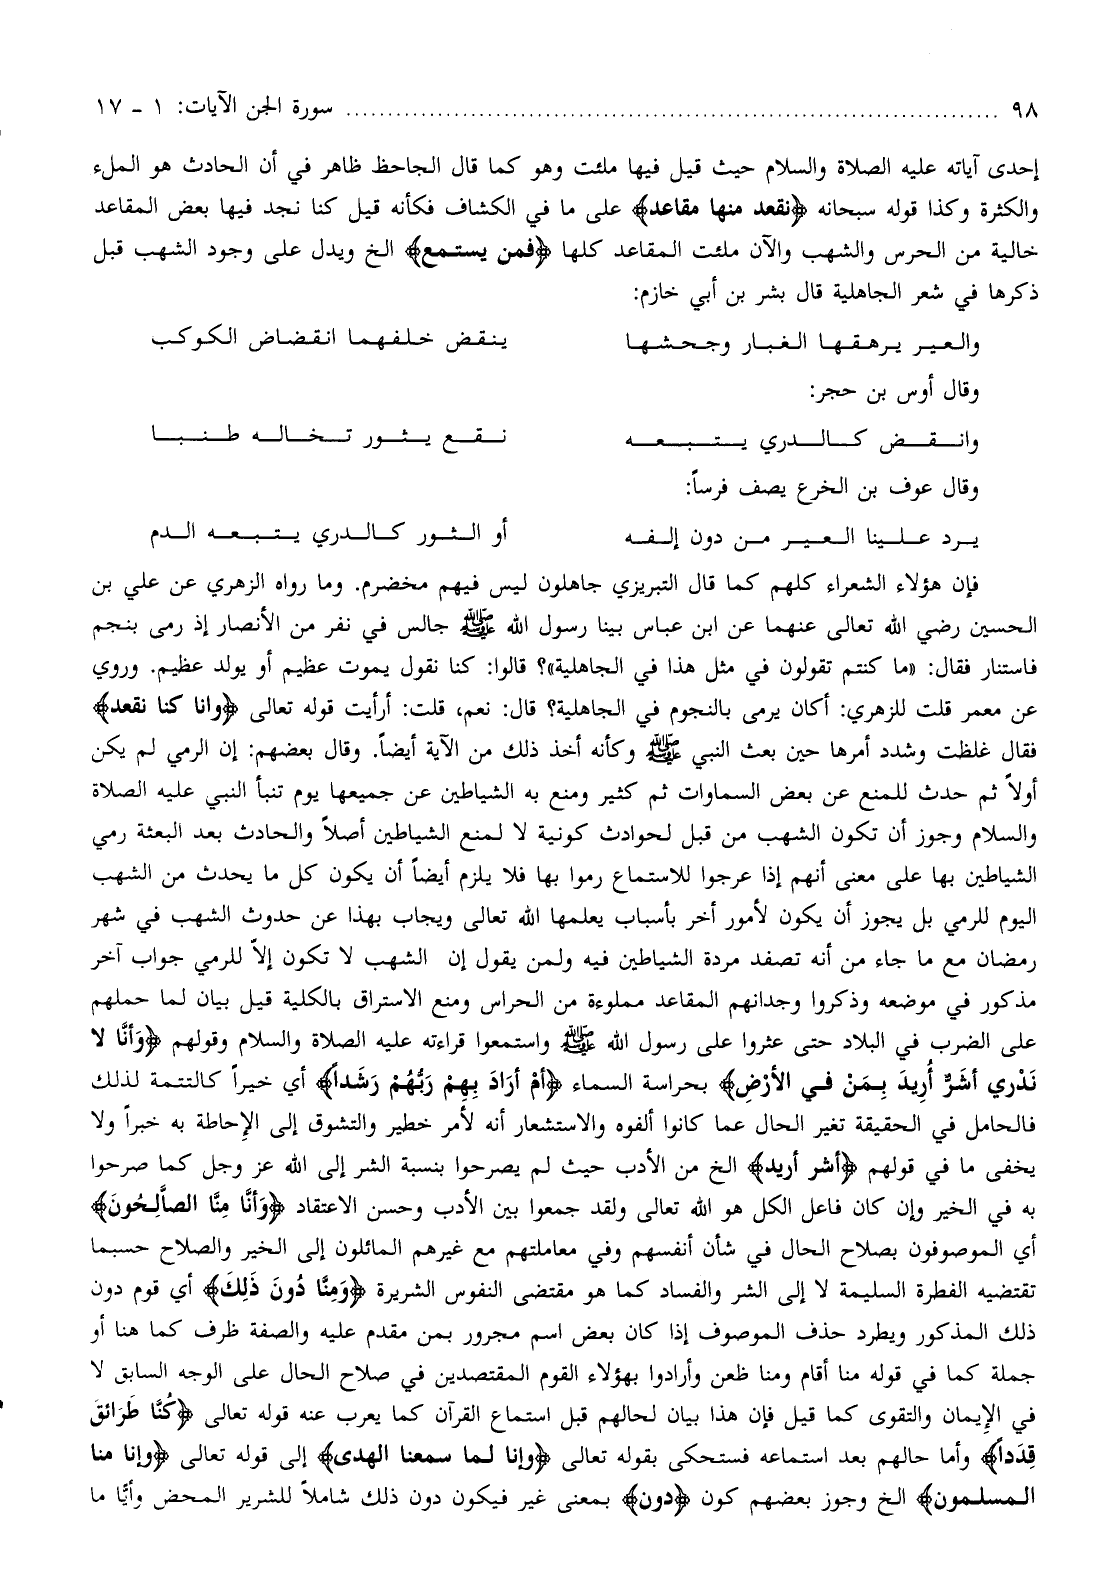 ٩٨ ........................................................................ سورة الجن الآيات: ١ - ١٧
إحدى آياته عليه الصلاة والسلام حيث قيل فيها ملئت وهو كما قال الجاحظ ظاهر في أن الحادث هو الملء
والكثرة وكذا قوله سبحانه ﴿نقعد منها مقاعد﴾ على ما في الكشاف فكأنه قيل كنا نجد فيها بعض المقاعد
خالية من الحرس والشهب والآن ملئت المقاعد كلها ﴿فمن يستمع﴾ الخ ويدل على وجود الشهب قبل
ذكرها في شعر الجاهلية قال بشر بن أبي خازم:
والعير يرهقها الغبار وجحشها ينقض خلفهما انقضاض الكوكب
وقال أوس بن حجر:
وانقض كالدري يتبعه نقع يثور تخاله طنبا
وقال عوف بن الخرع يصف فرساً:
يرد علينا العير من دون إلفه أو الثور كالدري يتبعه الدم
فإن هؤلاء الشعراء كلهم كما قال التبريزي جاهلون ليس فيهم مخضرم. وما رواه الزهري عن علي بن
الحسين رضي الله تعالى عنهما عن ابن عباس بينا رسول الله ﷺ جالس في نفر من الأنصار إذ رمى بنجم
فاستنار فقال: «ما كنتم تقولون في مثل هذا في الجاهلية»؟ قالوا: كنا نقول يموت عظيم أو يولد عظيم. وروي
عن معمر قلت للزهري: أكان يرمى بالنجوم في الجاهلية؟ قال: نعم، قلت: أرأيت قوله تعالى ﴿وانا كنا نقعد﴾
فقال غلظت وشدد أمرها حين بعث النبي ﷺ وكأنه أخذ ذلك من الآية أيضاً. وقال بعضهم: إن الرمي لم يكن
أولاً ثم حدث للمنع عن بعض السماوات ثم كثير ومنع به الشياطين عن جميعها يوم تنبأ النبي عليه الصلاة
والسلام وجوز أن تكون الشهب من قبل لحوادث كونية لا لمنع الشياطين أصلاً والحادث بعد البعثة رمي
الشياطين بها على معنى أنهم إذا عرجوا للاستماع رموا بها فلا يلزم أيضاً أن يكون كل ما يحدث من الشهب
اليوم للرمي بل يجوز أن يكون لأمور أخر بأسباب يعلمها الله تعالى ويجاب بهذا عن حدوث الشهب في شهر
رمضان مع ما جاء من أنه تصفد مردة الشياطين فيه ولمن يقول إن الشهب لا تكون إلاّ للرمي جواب آخر
مذكور في موضعه وذكروا وجدانهم المقاعد مملوءة من الحراس ومنع الاستراق بالكلية قيل بيان لما حملهم
على الضرب في البلاد حتى عثروا على رسول الله ﷺ واستمعوا قراءته عليه الصلاة والسلام وقولهم ﴿وَأنَّا لا
نَدْري أشَرٌّ أُرِيدَ بِمَنْ في الأرْضِ﴾ بحراسة السماء ﴿أمْ أرَادَ بِهِمْ رَبُّهُمْ رَشَداً﴾ أي خيراً كالتتمة لذلك
فالحامل في الحقيقة تغير الحال عما كانوا ألفوه والاستشعار أنه لأمر خطير والتشوق إلى الإحاطة به خبراً ولا
يخفى ما في قولهم ﴿أشر أريد﴾ الخ من الأدب حيث لم يصرحوا بنسبة الشر إلى الله عز وجل كما صرحوا
به في الخير وإن كان فاعل الكل هو الله تعالى ولقد جمعوا بين الأدب وحسن الاعتقاد ﴿وَأنَّا مِنَّا الصَّالِحُونَ﴾
أي الموصوفون بصلاح الحال في شأن أنفسهم وفي معاملتهم مع غيرهم المائلون إلى الخير والصلاح حسبما
تقتضيه الفطرة السليمة لا إلى الشر والفساد كما هو مقتضى النفوس الشريرة ﴿وَمِنَّا دُونَ ذَلِكَ﴾ أي قوم دون
ذلك المذكور ويطرد حذف الموصوف إذا كان بعض اسم مجرور بمن مقدم عليه والصفة ظرف كما هنا أو
جملة كما في قوله منا أقام ومنا ظعن وأرادوا بهؤلاء القوم المقتصدين في صلاح الحال على الوجه السابق لا
في الإيمان والتقوى كما قيل فإن هذا بيان لحالهم قبل استماع القرآن كما يعرب عنه قوله تعالى ﴿كُنَّا طَرَائقَ
قِدَداً﴾ وأما حالهم بعد استماعه فستحكى بقوله تعالى ﴿وإنا لما سمعنا الهدى﴾ إلى قوله تعالى ﴿وإنا منا
المسلمون﴾ الخ وجوز بعضهم كون ﴿دون﴾ بمعنى غير فيكون دون ذلك شاملاً للشرير المحض وأيًّا ما